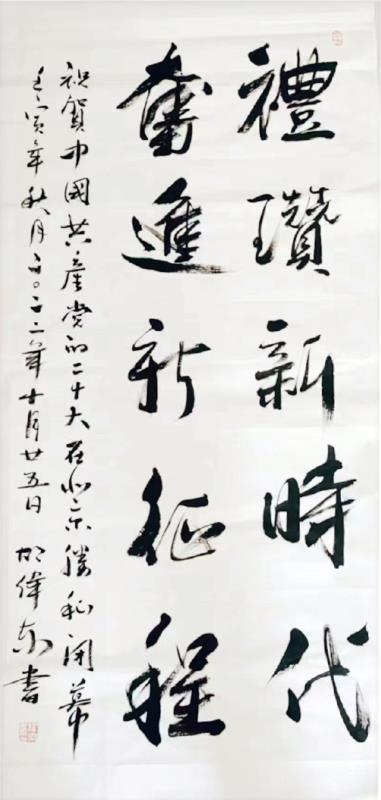 禮讚新時代
奮進新征程
祝賀中國共産党的二十大在北京勝利闭幕
壬寅年秋月二〇二二年十月廿五日 胡偉东書